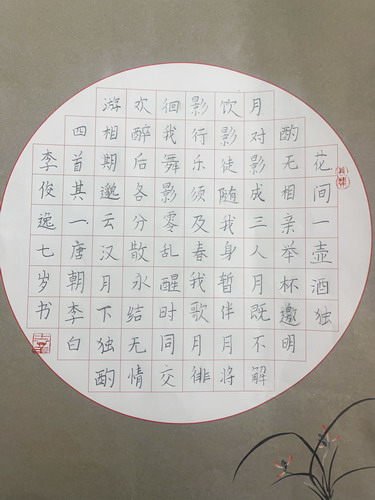 花间一壶酒独
酌无相亲举杯邀明
月对影成三人月既不解
饮影徒随我身暂伴月将
影行乐须及春我歌月徘
徊我舞影零乱醒时同交
欢醉后各分散永结无情
游相期邈云汉月下独酌
四首其一.唐朝李白
李俊逸七岁书